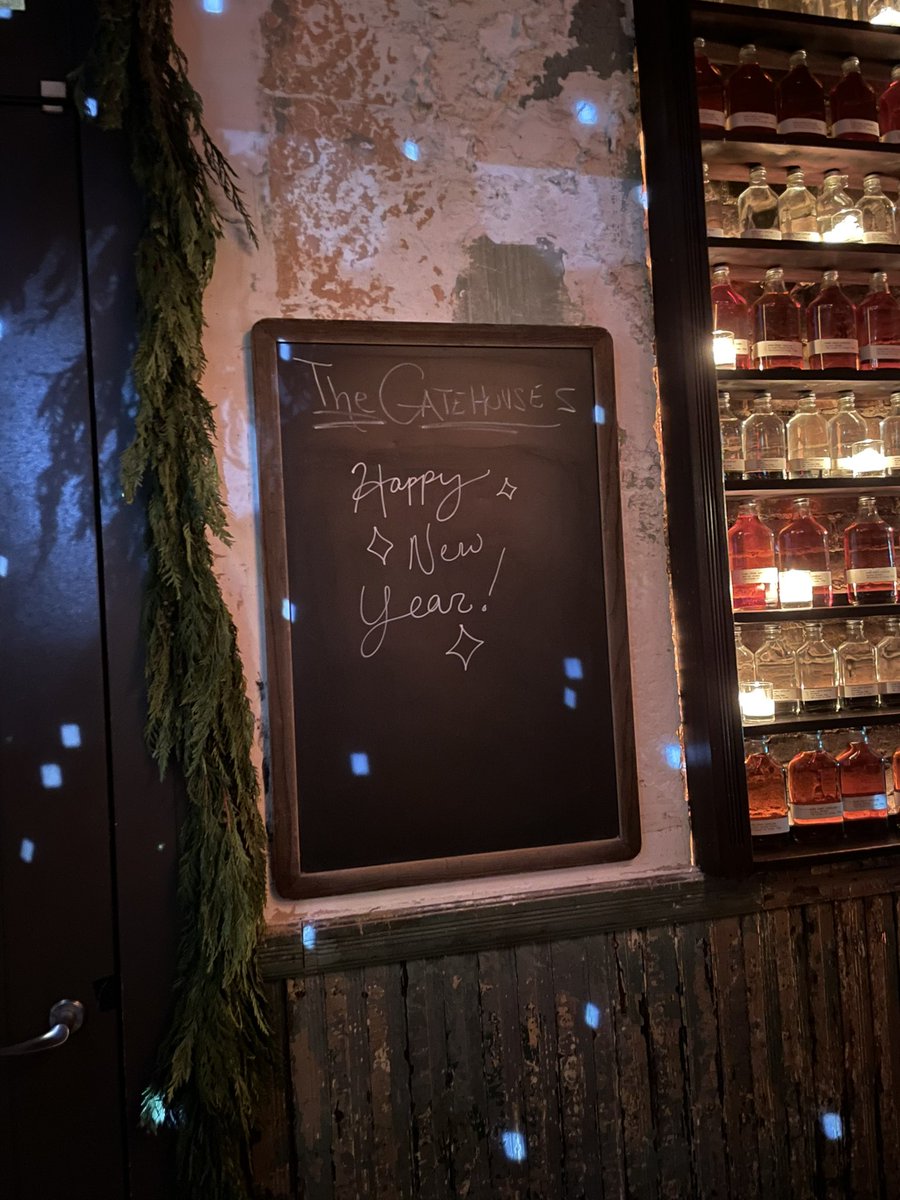 The GATEHOUSES
Happy
New
Year!